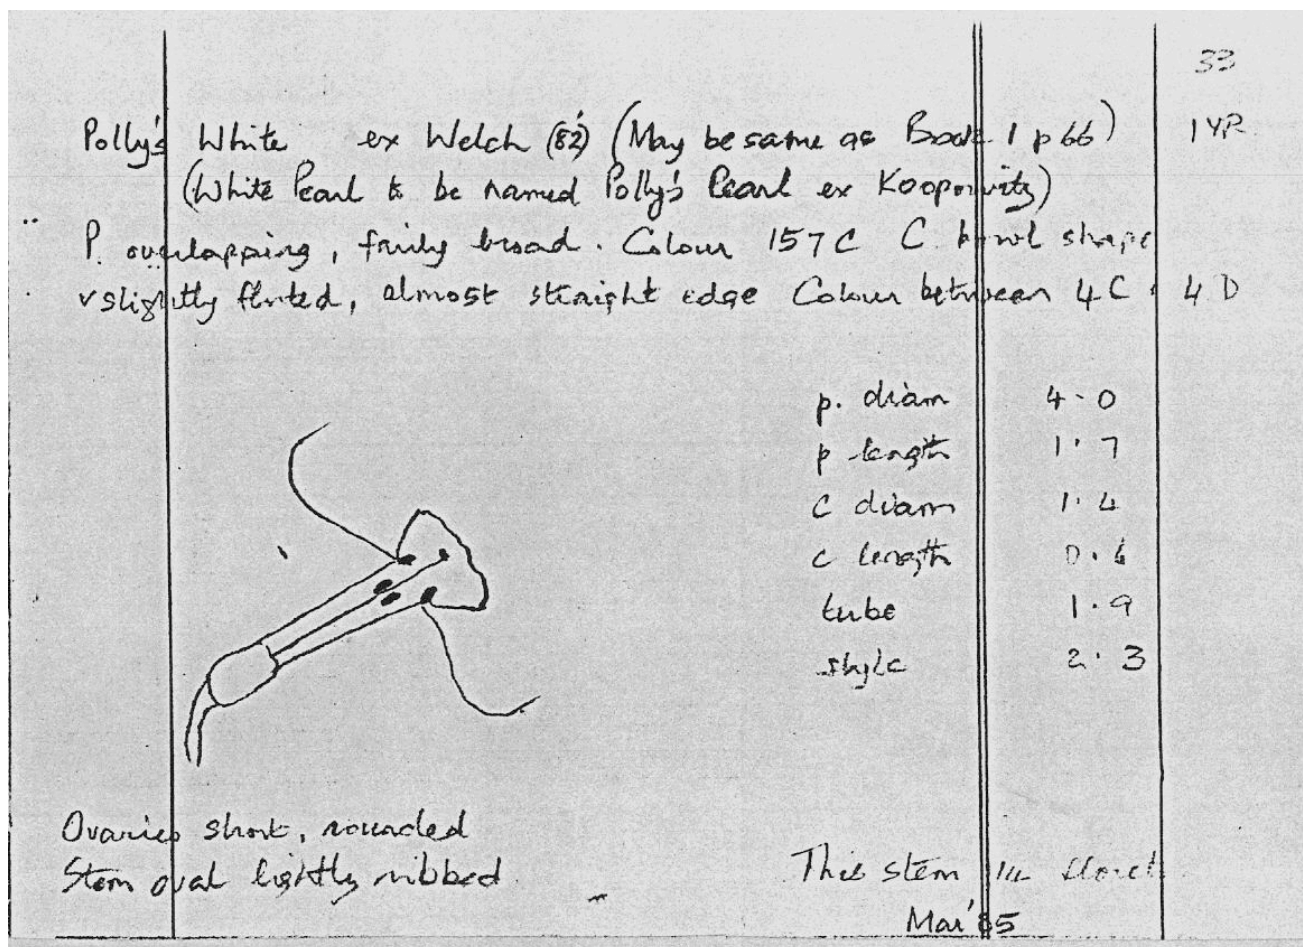 33
Polly's White ex Welch (82') (May be same as Book 1 p 66) 1 YR
(White Pearl to be named Polly's Pearl ex Koopowitz)
P. overlapping, fairly broad. Colour 157C C bowl shape
v slightly fluted, almost straight edge Colour between 4C 4D
p. diam 4.0
p length 1.7
c diam 1.4
c length 0.6
tube 1.9
style 2.3
Ovaries short, rounded
Stem oval lightly ribbed
This stem 14 floret
Mar '85